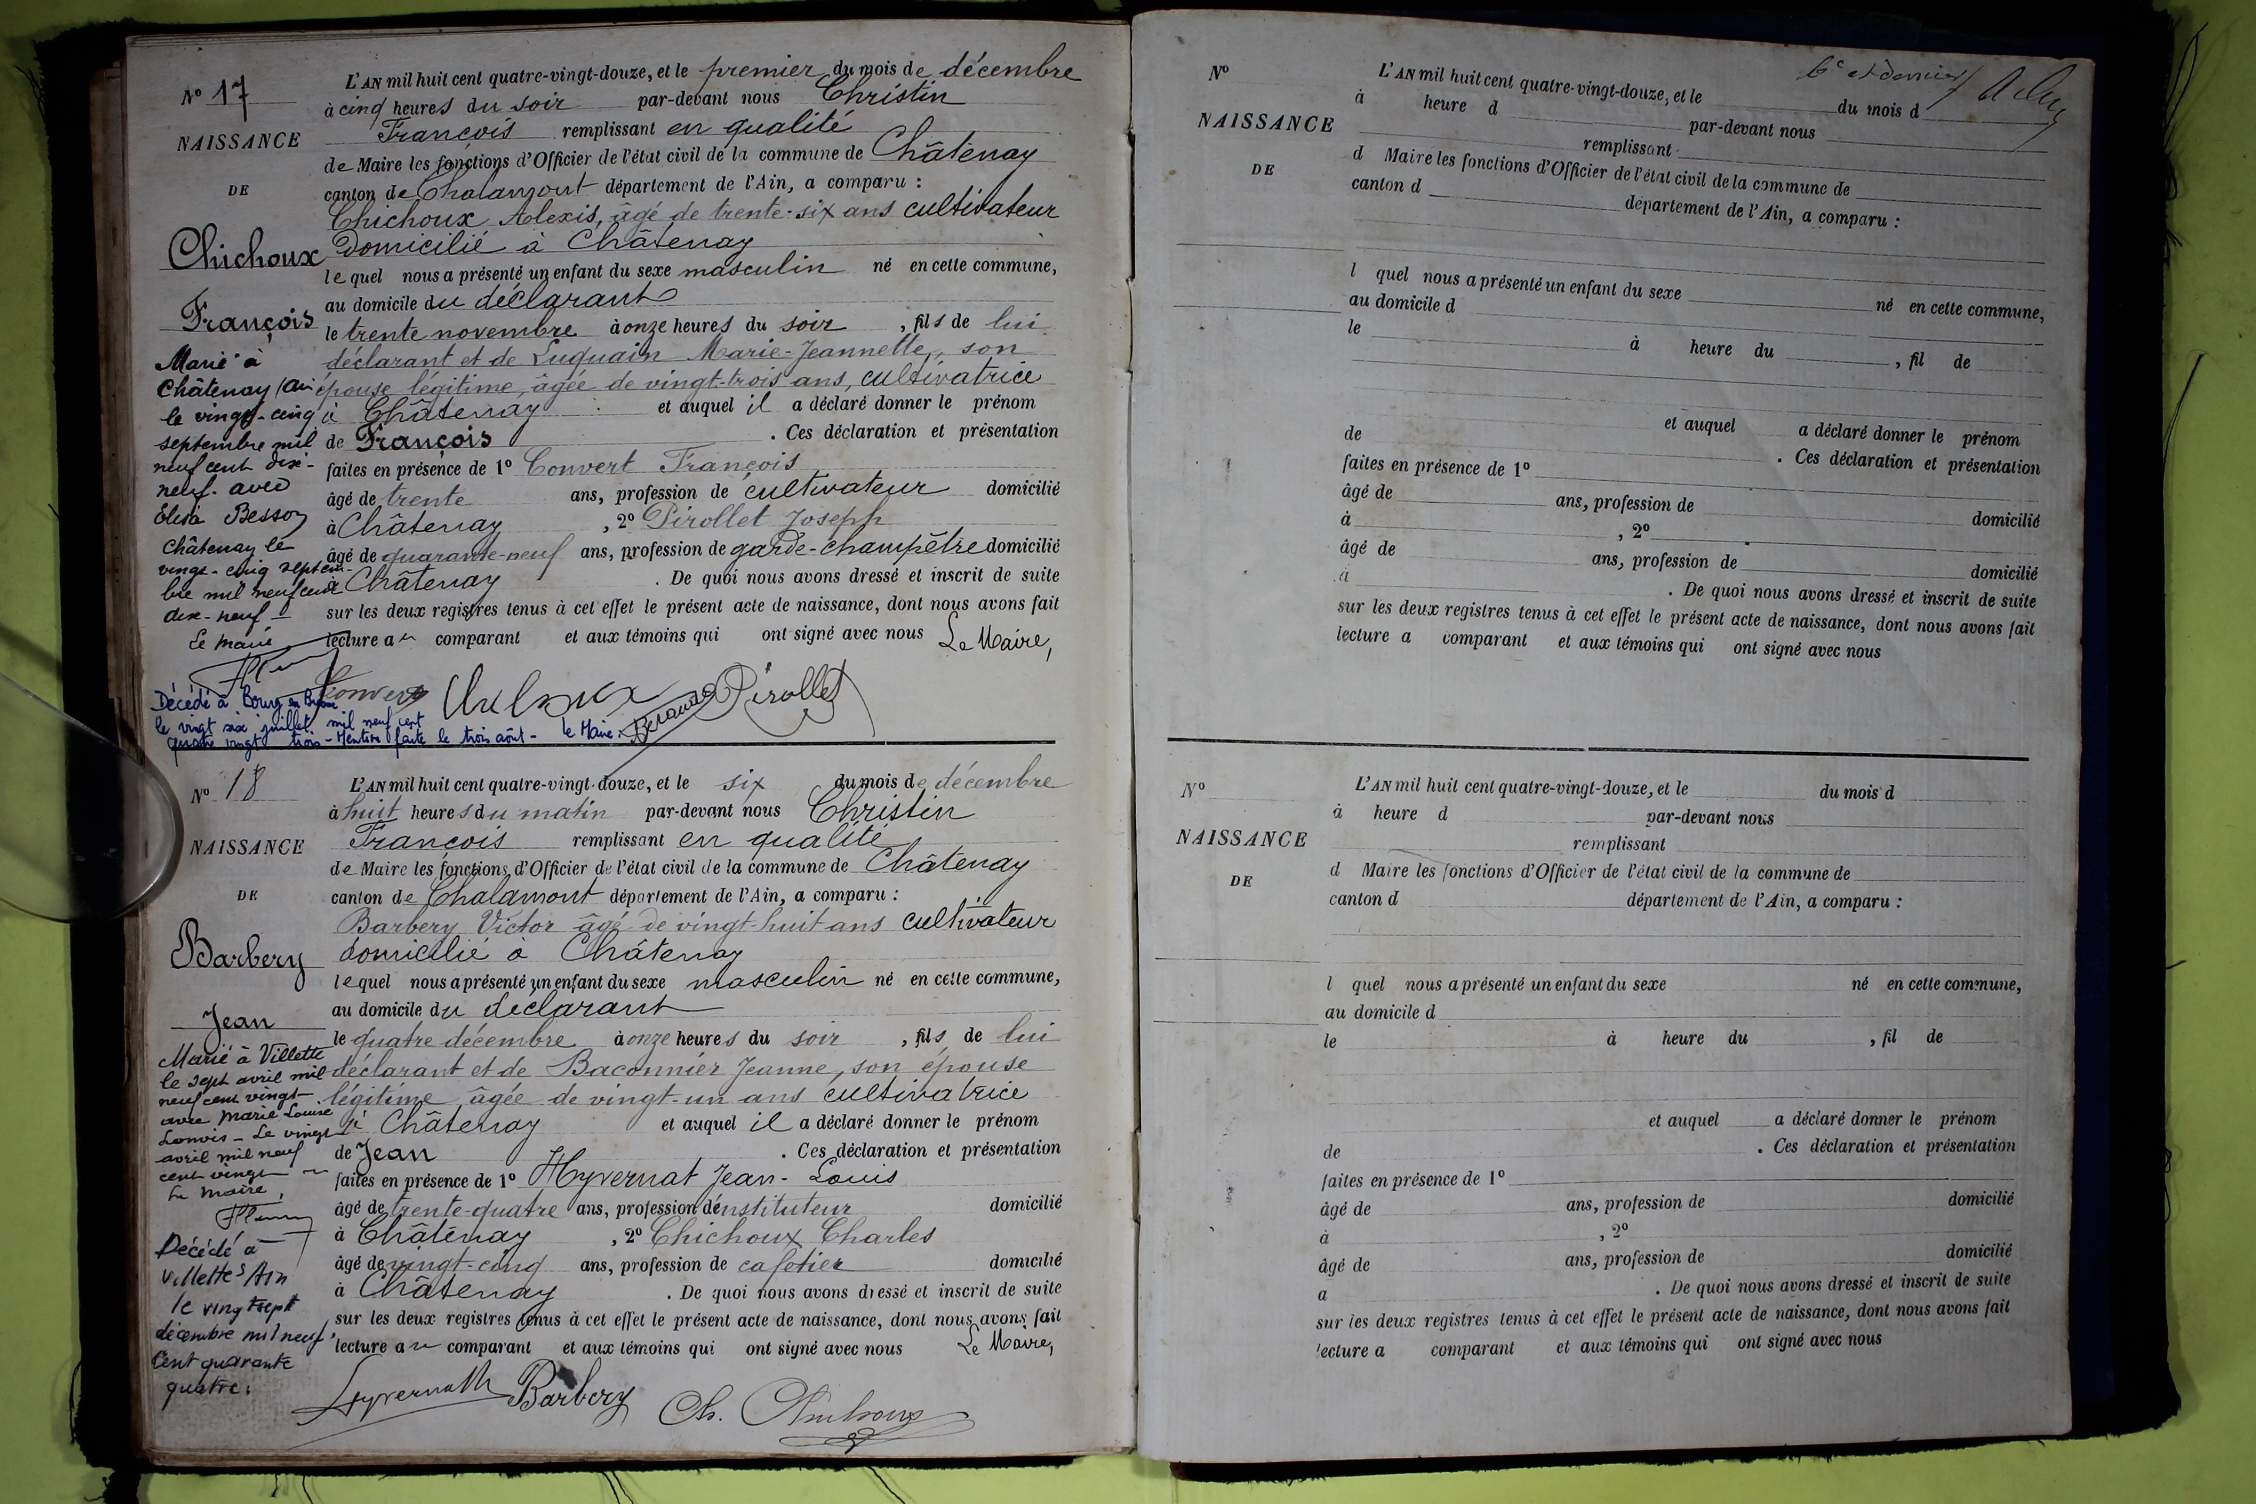 N° 17
NAISSANCE
DE
Chichoux
François
Marié à
Châtenay (Ain
le vingt-cinq
septembre mil
neuf cent dix-
neuf. avec
Elisa Besson
Châtenay le
vingt-cinq septem-
bre mil neuf cent
dix-neuf
Le maire
L'AN mil huit cent quatre-vingt-douze, et le premier du mois de décembre
à cinq heures du soir par-devant nous Christin
François remplissant en qualité
de Maire les fonctions d'Officier de l'état civil de la commune de Châtenay
canton de Chalamont département de l'Ain, a comparu :
Chichoux Alexis, âgé de trente-six ans cultivateur
Domicilié à Châtenay
lequel nous a présenté un enfant du sexe masculin né en cette commune,
au domicile du déclarant
le trente novembre à onze heures du soir , fils de lui
déclarant et de Luquain Marie-Jeannette, son
épouse légitime, âgée de vingt-trois ans, cultivatrice
à Châtenay et auquel il a déclaré donner le prénom
de François . Ces déclaration et présentation
faites en présence de 1° Convert François
âgé de trente ans, profession de cultivateur domicilié
à Châtenay , 2° Pirollet Joseph
âgé de quarante-neuf ans, profession de garde-champêtre domicilié
à Châtenay . De quoi nous avons dressé et inscrit de suite
sur les deux registres tenus à cet effet le présent acte de naissance, dont nous avons fait
lecture au comparant et aux témoins qui ont signé avec nous Le Maire,
Convert Chichoux Pirollet
Décédé à Bourg en Bresse
le vingt six juillet mil neuf cent
quatre vingt trois - Mention faite le trois août - le Maire.
N° 18
NAISSANCE
DE
Barbery
Jean
Marié à Villette
le sept avril mil
neuf cent vingt
avec Marie Louise
Convis - Le vingt
avril mil neuf
cent vingt
Le maire,
Décédé à
Villettes Ain
le vingt sept
décembre mil neuf
Cent quarante
quatre.
L'AN mil huit cent quatre-vingt-douze, et le six du mois de décembre
à huit heures du matin par-devant nous Christin
François remplissant en qualité
de Maire les fonctions d'Officier de l'état civil de la commune de Châtenay
canton de Chalamont département de l'Ain, a comparu :
Barbery Victor âgé de vingt-huit ans cultivateur
domicilié à Châtenay
lequel nous a présenté un enfant du sexe masculin né en cette commune,
au domicile du déclarant
le quatre décembre à onze heures du soir , fils de lui
déclarant et de Baconnier Jeanne, son épouse
légitime âgée de vingt-un ans cultivatrice
à Châtenay et auquel il a déclaré donner le prénom
de Jean . Ces déclaration et présentation
faites en présence de 1° Hyvernat Jean-Louis
âgé de trente-quatre ans, profession d'instituteur domicilié
à Châtenay , 2° Chichoux Charles
âgé de vingt-cinq ans, profession de cafetier domicilié
à Châtenay . De quoi nous avons dressé et inscrit de suite
sur les deux registres tenus à cet effet le présent acte de naissance, dont nous avons fait
lecture au comparant et aux témoins qui ont signé avec nous Le Maire,
Hyvernat Barbery Ch. Chichoux
6e et dernier
N°
NAISSANCE
DE
L'AN mil huit cent quatre-vingt-douze, et le du mois d
à heure d par-devant nous
remplissant
d Maire les fonctions d'Officier de l'état civil de la commune de
canton d département de l'Ain, a comparu :
l quel nous a présenté un enfant du sexe né en cette commune,
au domicile d
le à heure du , fil de
et auquel a déclaré donner le prénom
de . Ces déclaration et présentation
faites en présence de 1°
âgé de ans, profession de domicilié
à , 2°
âgé de ans, profession de domicilié
à . De quoi nous avons dressé et inscrit de suite
sur les deux registres tenus à cet effet le présent acte de naissance, dont nous avons fait
lecture a comparant et aux témoins qui ont signé avec nous
N°
NAISSANCE
DE
L'AN mil huit cent quatre-vingt-douze, et le du mois d
à heure d par-devant nous
remplissant
d Maire les fonctions d'Officier de l'état civil de la commune de
canton d département de l'Ain, a comparu :
l quel nous a présenté un enfant du sexe né en cette commune,
au domicile d
le à heure du , fil de
et auquel a déclaré donner le prénom
de . Ces déclaration et présentation
faites en présence de 1°
âgé de ans, profession de domicilié
à , 2°
âgé de ans, profession de domicilié
a . De quoi nous avons dressé et inscrit de suite
sur les deux registres tenus à cet effet le présent acte de naissance, dont nous avons fait
lecture a comparant et aux témoins qui ont signé avec nous